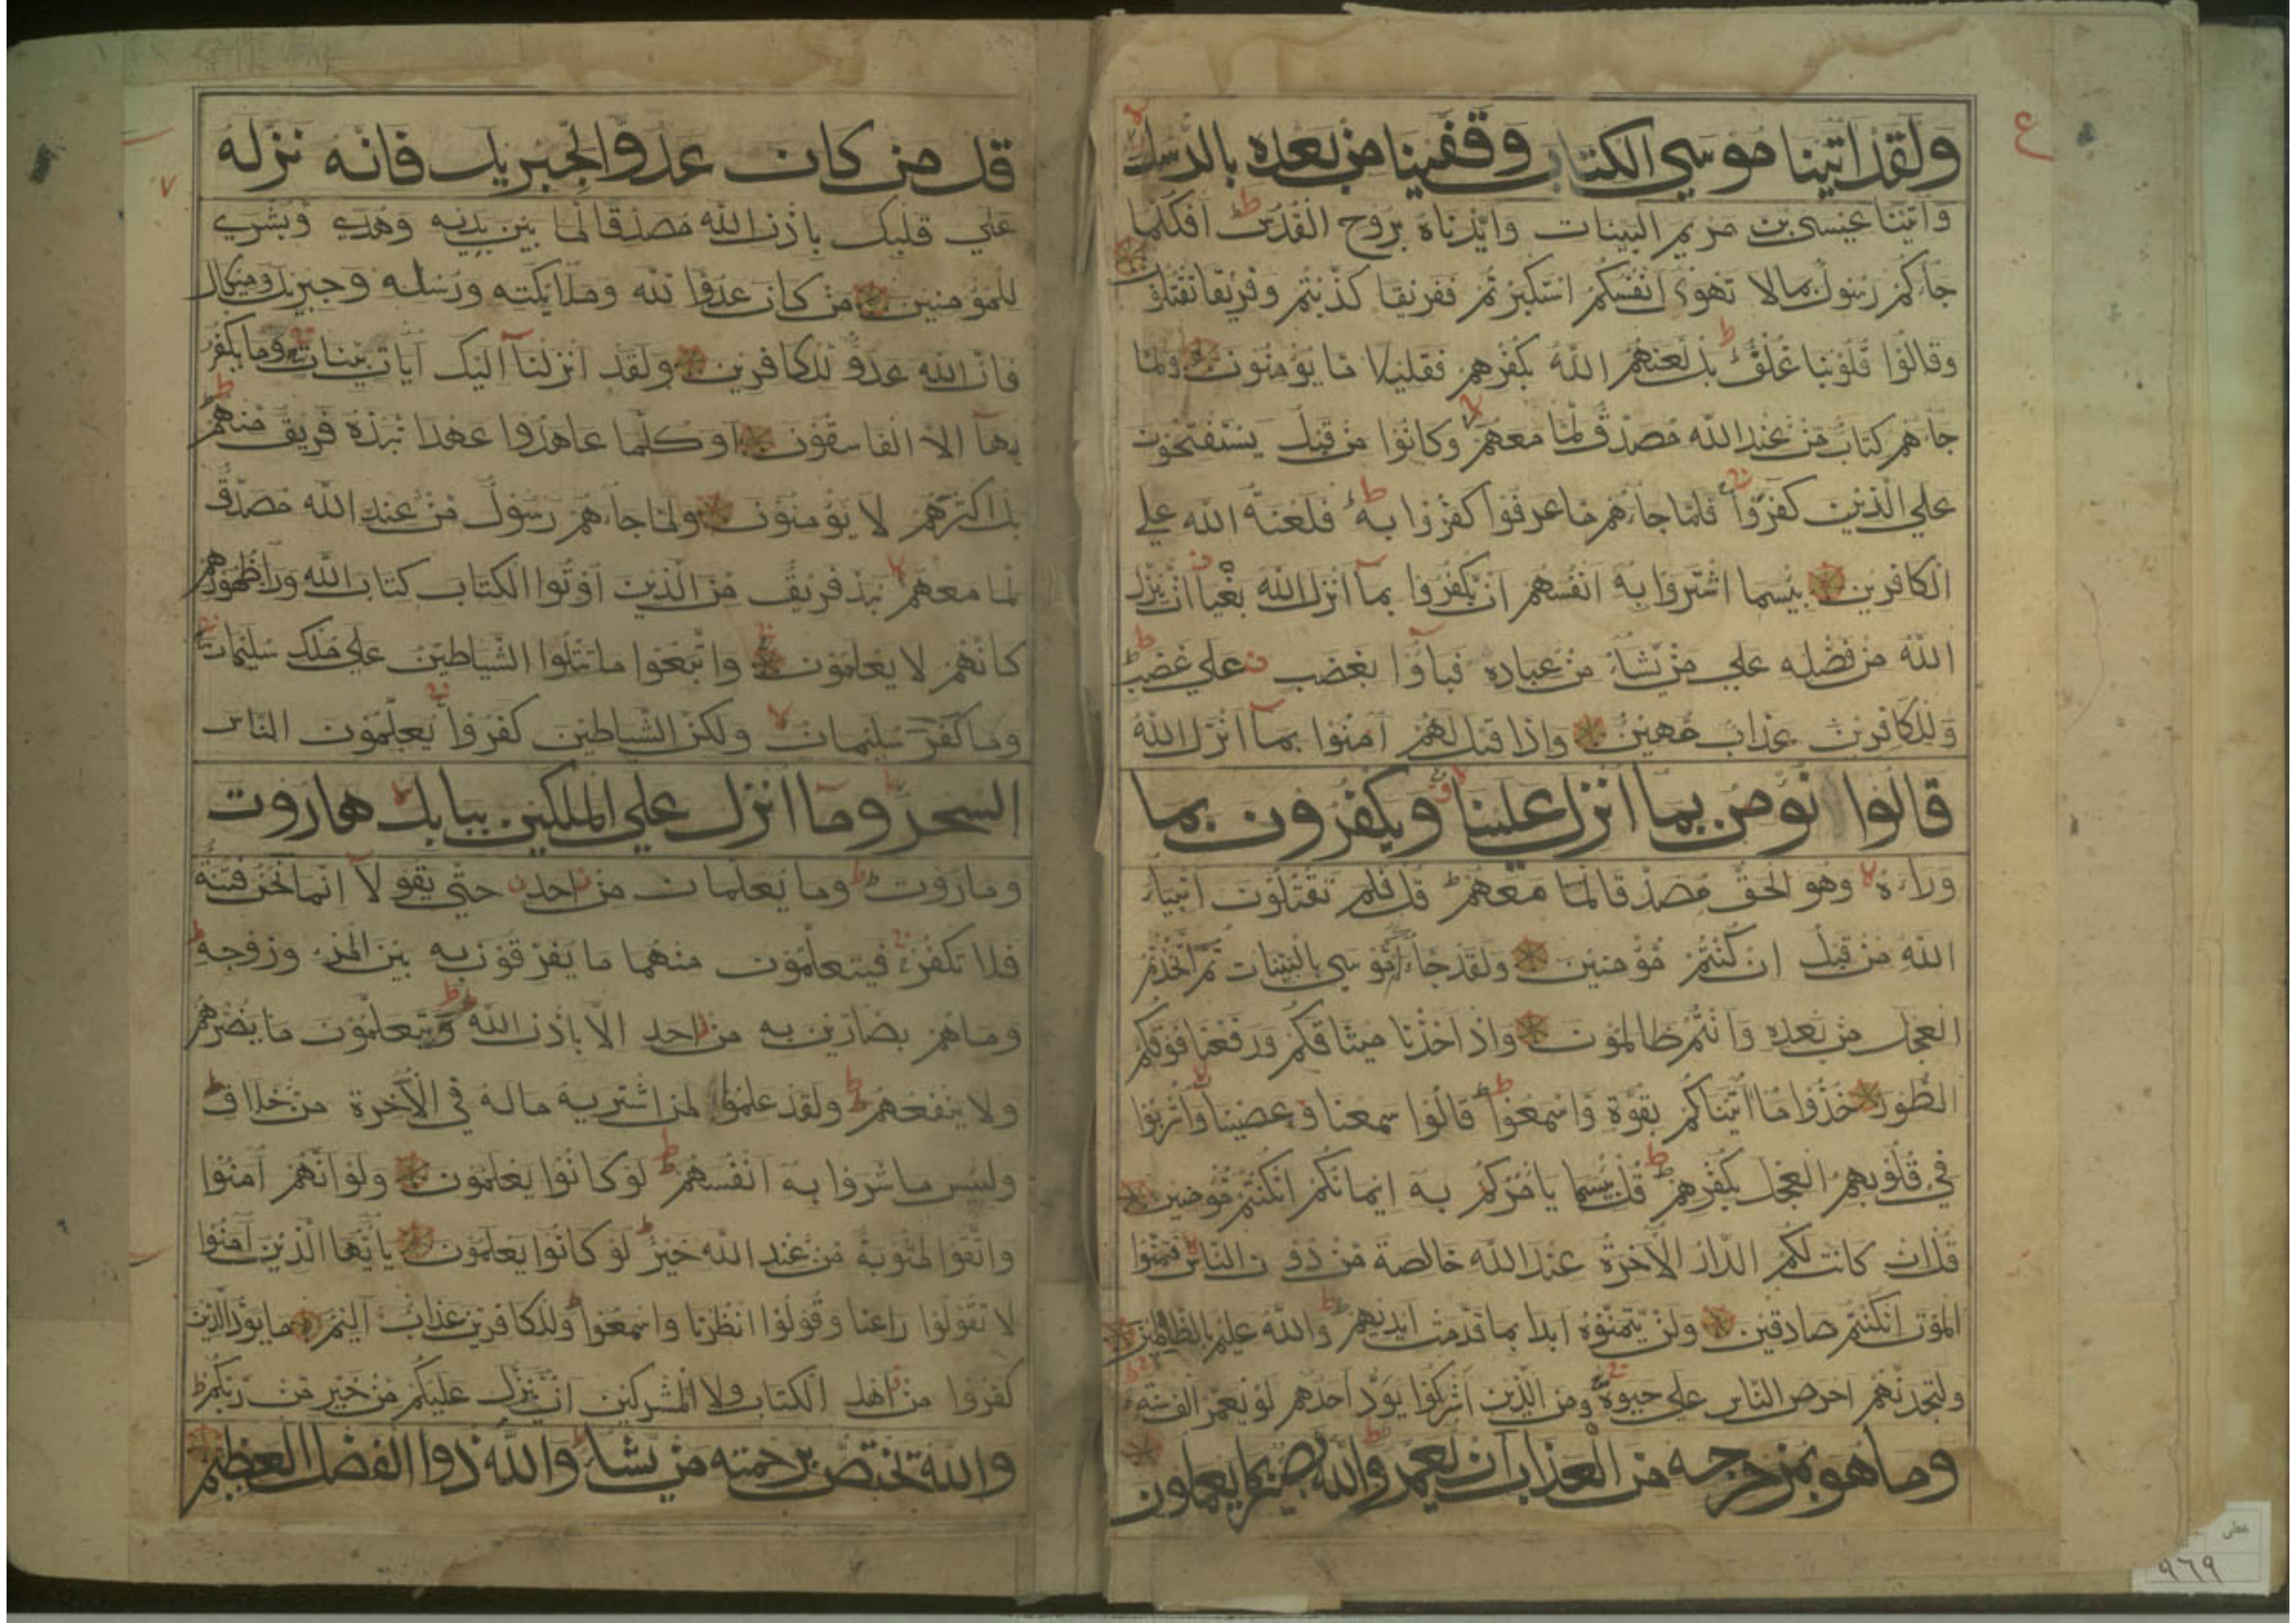 ع
ولقد اتينا موسي الكتاب وقفينا من بعده بالرسل
وآتينا عيسى بن مريم البينات وايدناه بروح القدس افكلما
جاءكم رسول بما لا تهوى انفسكم استكبرتم ففريقا كذبتم وفريقا تقتلون
وقالوا قلوبنا غلف بل لعنهم الله بكفرهم فقليلا ما يؤمنون ولما
جاءهم كتاب من عند الله مصدق لما معهم وكانوا من قبل يستفتحون
علي الذين كفروا فلما جاءهم ما عرفوا كفروا به فلعنة الله علي
الكافرين بئسما اشتروا به انفسهم ان يكفروا بما انزل الله بغيا ان ينزل
الله من فضله علي من يشاء من عباده فباؤا بغضب علي غضب
وللكافرين عذاب مهين واذا قيل لهم آمنوا بما انزل الله
قالوا نؤمن بما انزل علينا ويكفرون بما
وراءه وهو الحق مصدقا لما معهم قل فلم تقتلون انبياء
الله من قبل ان كنتم مؤمنين ولقد جاءكم موسى بالبينات ثم اتخذتم
العجل من بعده وانتم ظالمون واذ اخذنا ميثاقكم ورفعنا فوقكم
الطور خذوا ما اتيناكم بقوة واسمعوا قالوا سمعنا وعصينا واشربوا
في قلوبهم العجل بكفرهم قل بئسما يامركم به ايمانكم ان كنتم مؤمنين
قل ان كانت لكم الدار الآخرة عند الله خالصة من دون الناس فتمنوا
الموت ان كنتم صادقين ولن يتمنوه ابدا بما قدمت ايديهم والله عليم بالظالمين
ولتجدنهم احرص الناس علي حيوة ومن الذين اشركوا يود احدهم لو يعمر الف سنة
وما هو بمزحزحه من العذاب ان يعمر والله بصير بما يعملون
قل من كان عدوا لجبريل فانه نزله
علي قلبك باذن الله مصدقا لما بين يديه وهدي وبشري
للمؤمنين من كان عدوا لله وملائكته ورسله وجبريل وميكال
فان الله عدو للكافرين ولقد انزلنا اليك آيات بينات وما يكفر
بها الا الفاسقون اوكلما عاهدوا عهدا نبذه فريق منهم
بل اكثرهم لا يؤمنون ولما جاءهم رسول من عند الله مصدق
لما معهم نبذ فريق من الذين اوتوا الكتاب كتاب الله وراء ظهورهم
كانهم لا يعلمون واتبعوا ما تتلوا الشياطين علي ملك سليمان
وما كفر سليمان ولكن الشياطين كفروا يعلمون الناس
السحر وما انزل علي الملكين ببابل هاروت
وماروت وما يعلمان من احد حتي يقولا انما نحن فتنة
فلا تكفر فيتعلمون منهما ما يفرقون به بين المرء وزوجه
وما هم بضارين به من احد الا باذن الله ويتعلمون ما يضرهم
ولا ينفعهم ولقد علموا لمن اشتريه ماله في الآخرة من خلاق
ولبئس ما شروا به انفسهم لو كانوا يعلمون ولو انهم آمنوا
واتقوا لمثوبة من عند الله خير لو كانوا يعلمون يا ايها الذين آمنوا
لا تقولوا راعنا وقولوا انظرنا واسمعوا وللكافرين عذاب اليم ما يود الذين
كفروا من اهل الكتاب ولا المشركين ان ينزل عليكم من خير من ربكم
والله يختص برحمته من يشاء والله ذوا الفضل العظيم
خطی
٩٦٩